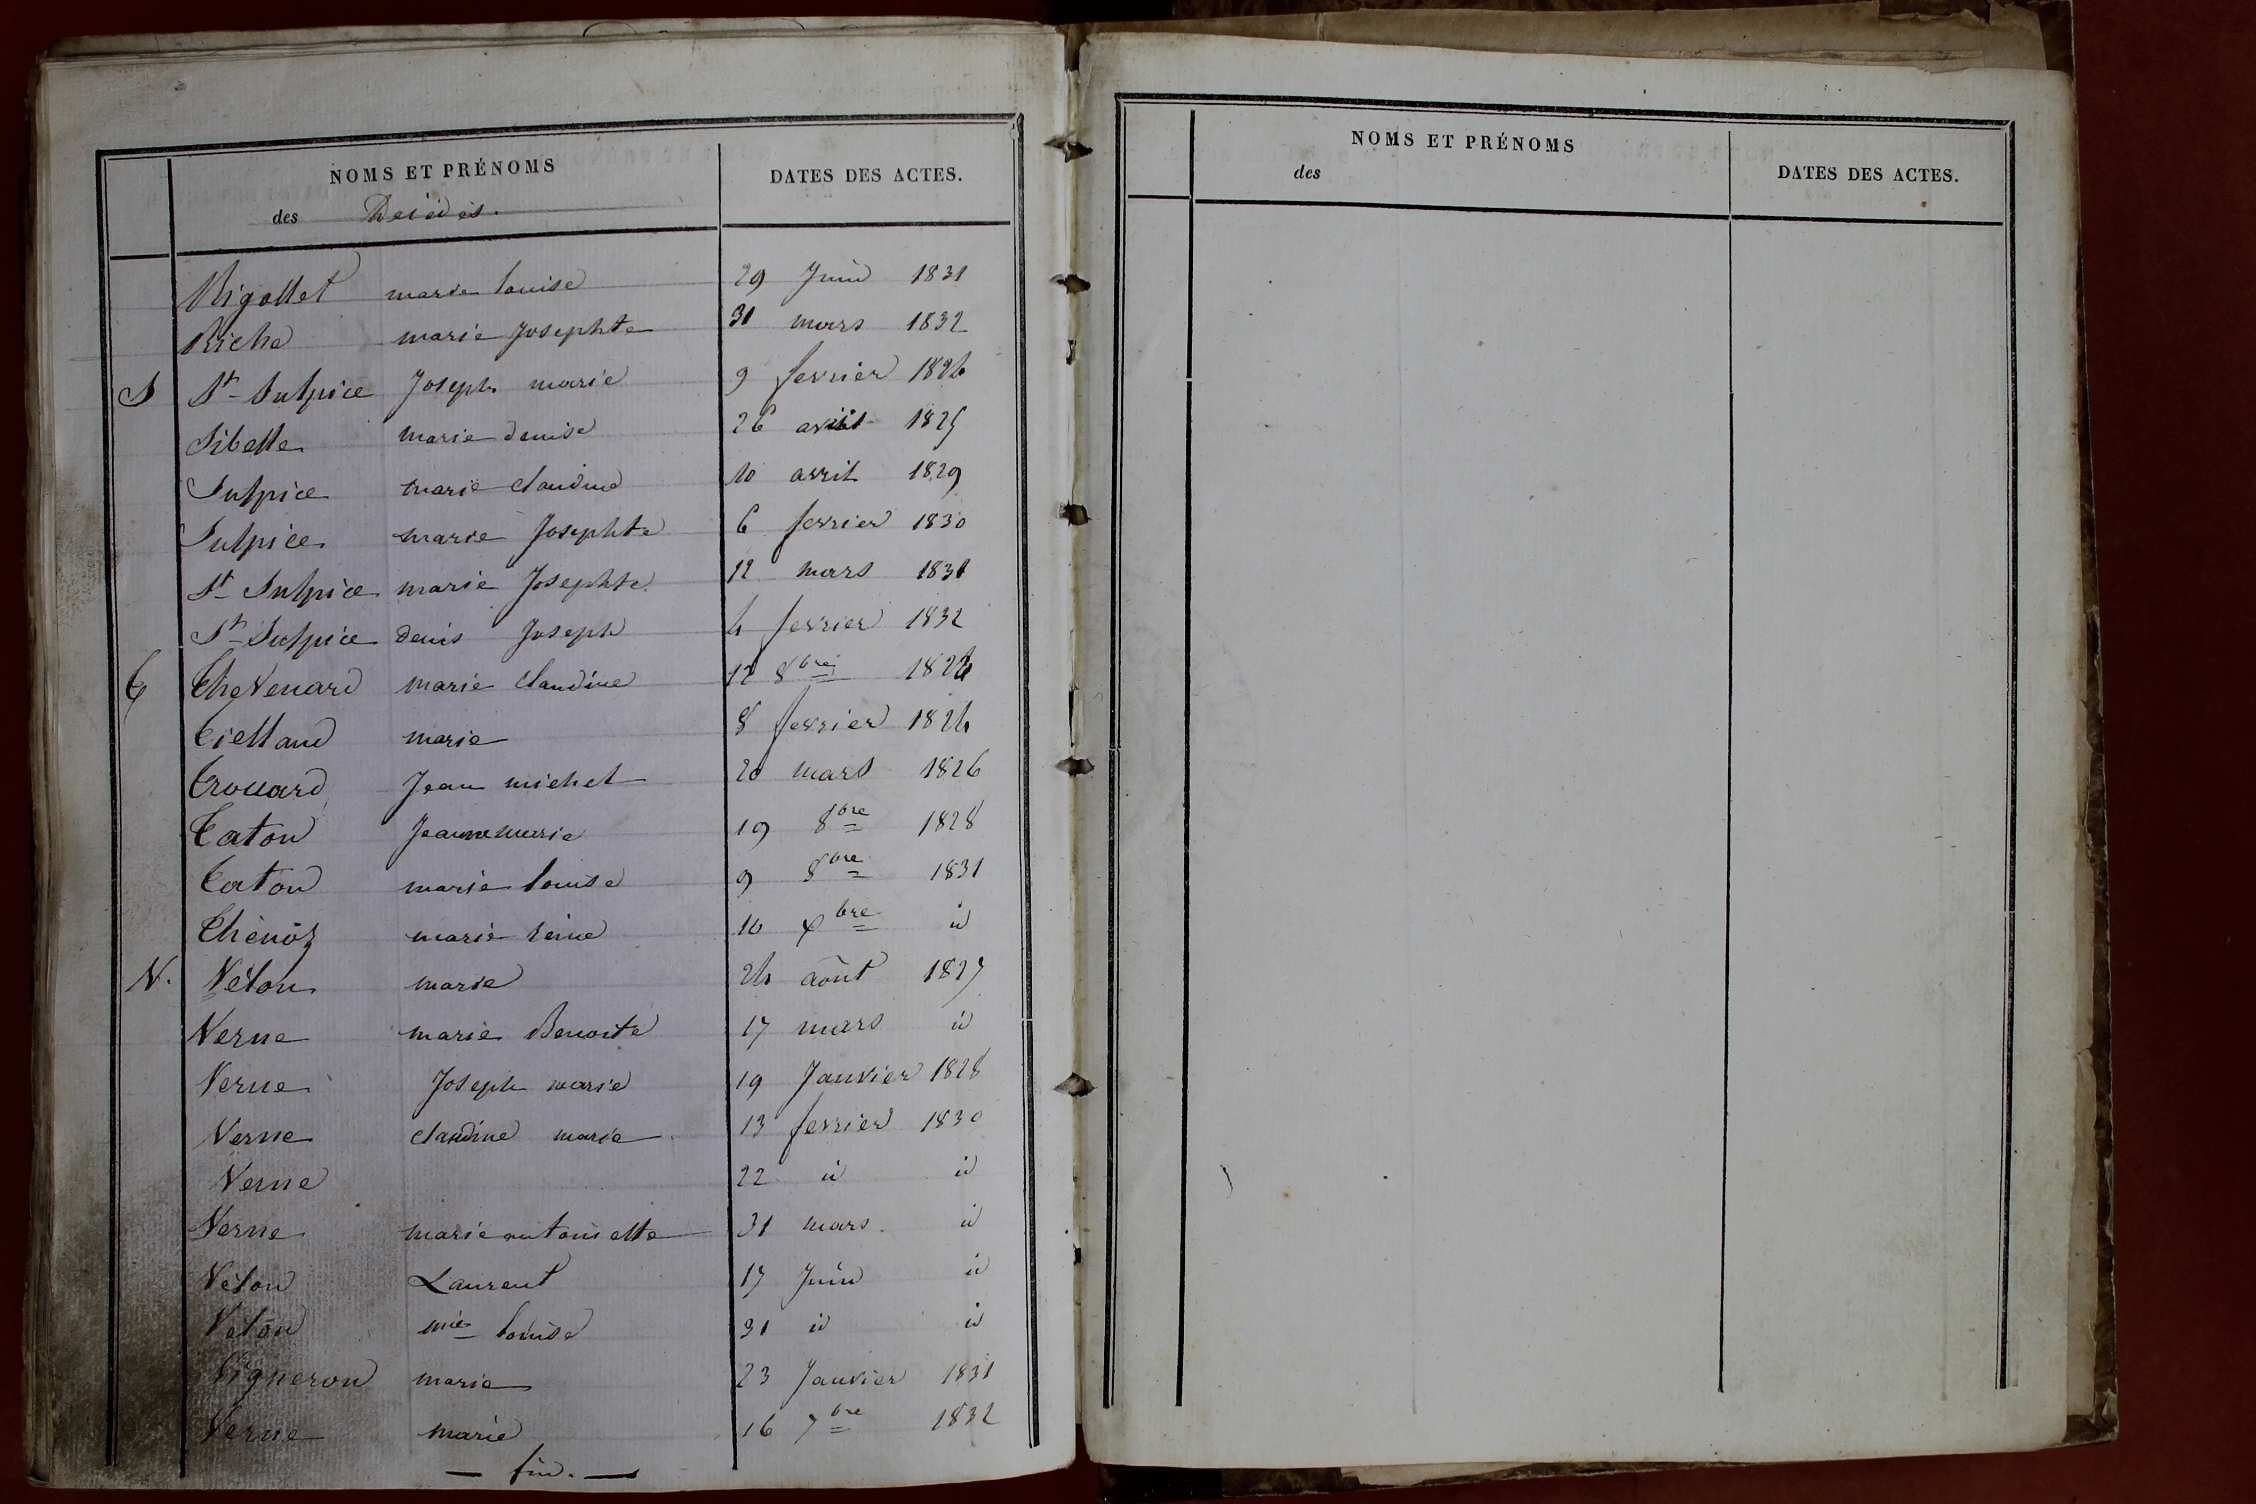 NOMS ET PRÉNOMS
des Décédés.
DATES DES ACTES.
Rigollet marie louise 29 Juin 1831
Riche marie Josephte 31 mars 1832
S St Sulpice Joseph marie 9 fevrier 1824
Sibelle marie denise 26 avril 1825
Sulpice marie claudine 10 avril 1829
Sulpice marie Josephte 6 fevrier 1830
St Sulpice marie Josephte 12 mars 1831
St Sulpice denis Joseph 4 fevrier 1832
T Thevenard marie claudine 12 8bre
Tielland marie 8 fevrier 1824
Trouard Jean michel 20 mars 1826
Taton Jeanne marie 19 8bre 1828
Taton marie louise 9 8bre 1831
Thénoz marie reine 10 xbre id
V. Véton marie 24 août 1827
Verne marie Benoite 17 mars id
Verne Joseph marie 19 Janvier 1828
Verne claudine marie 13 fevrier 1830
Verne 22 id id
Verne marie antoinette 31 mars id
Véton Laurent 17 Juin id
Véton mie louise 31 id id
Vigneron marie 23 Janvier 1831
Verne marie 16 7bre 1832
— fin. —
NOMS ET PRÉNOMS
des
DATES DES ACTES.